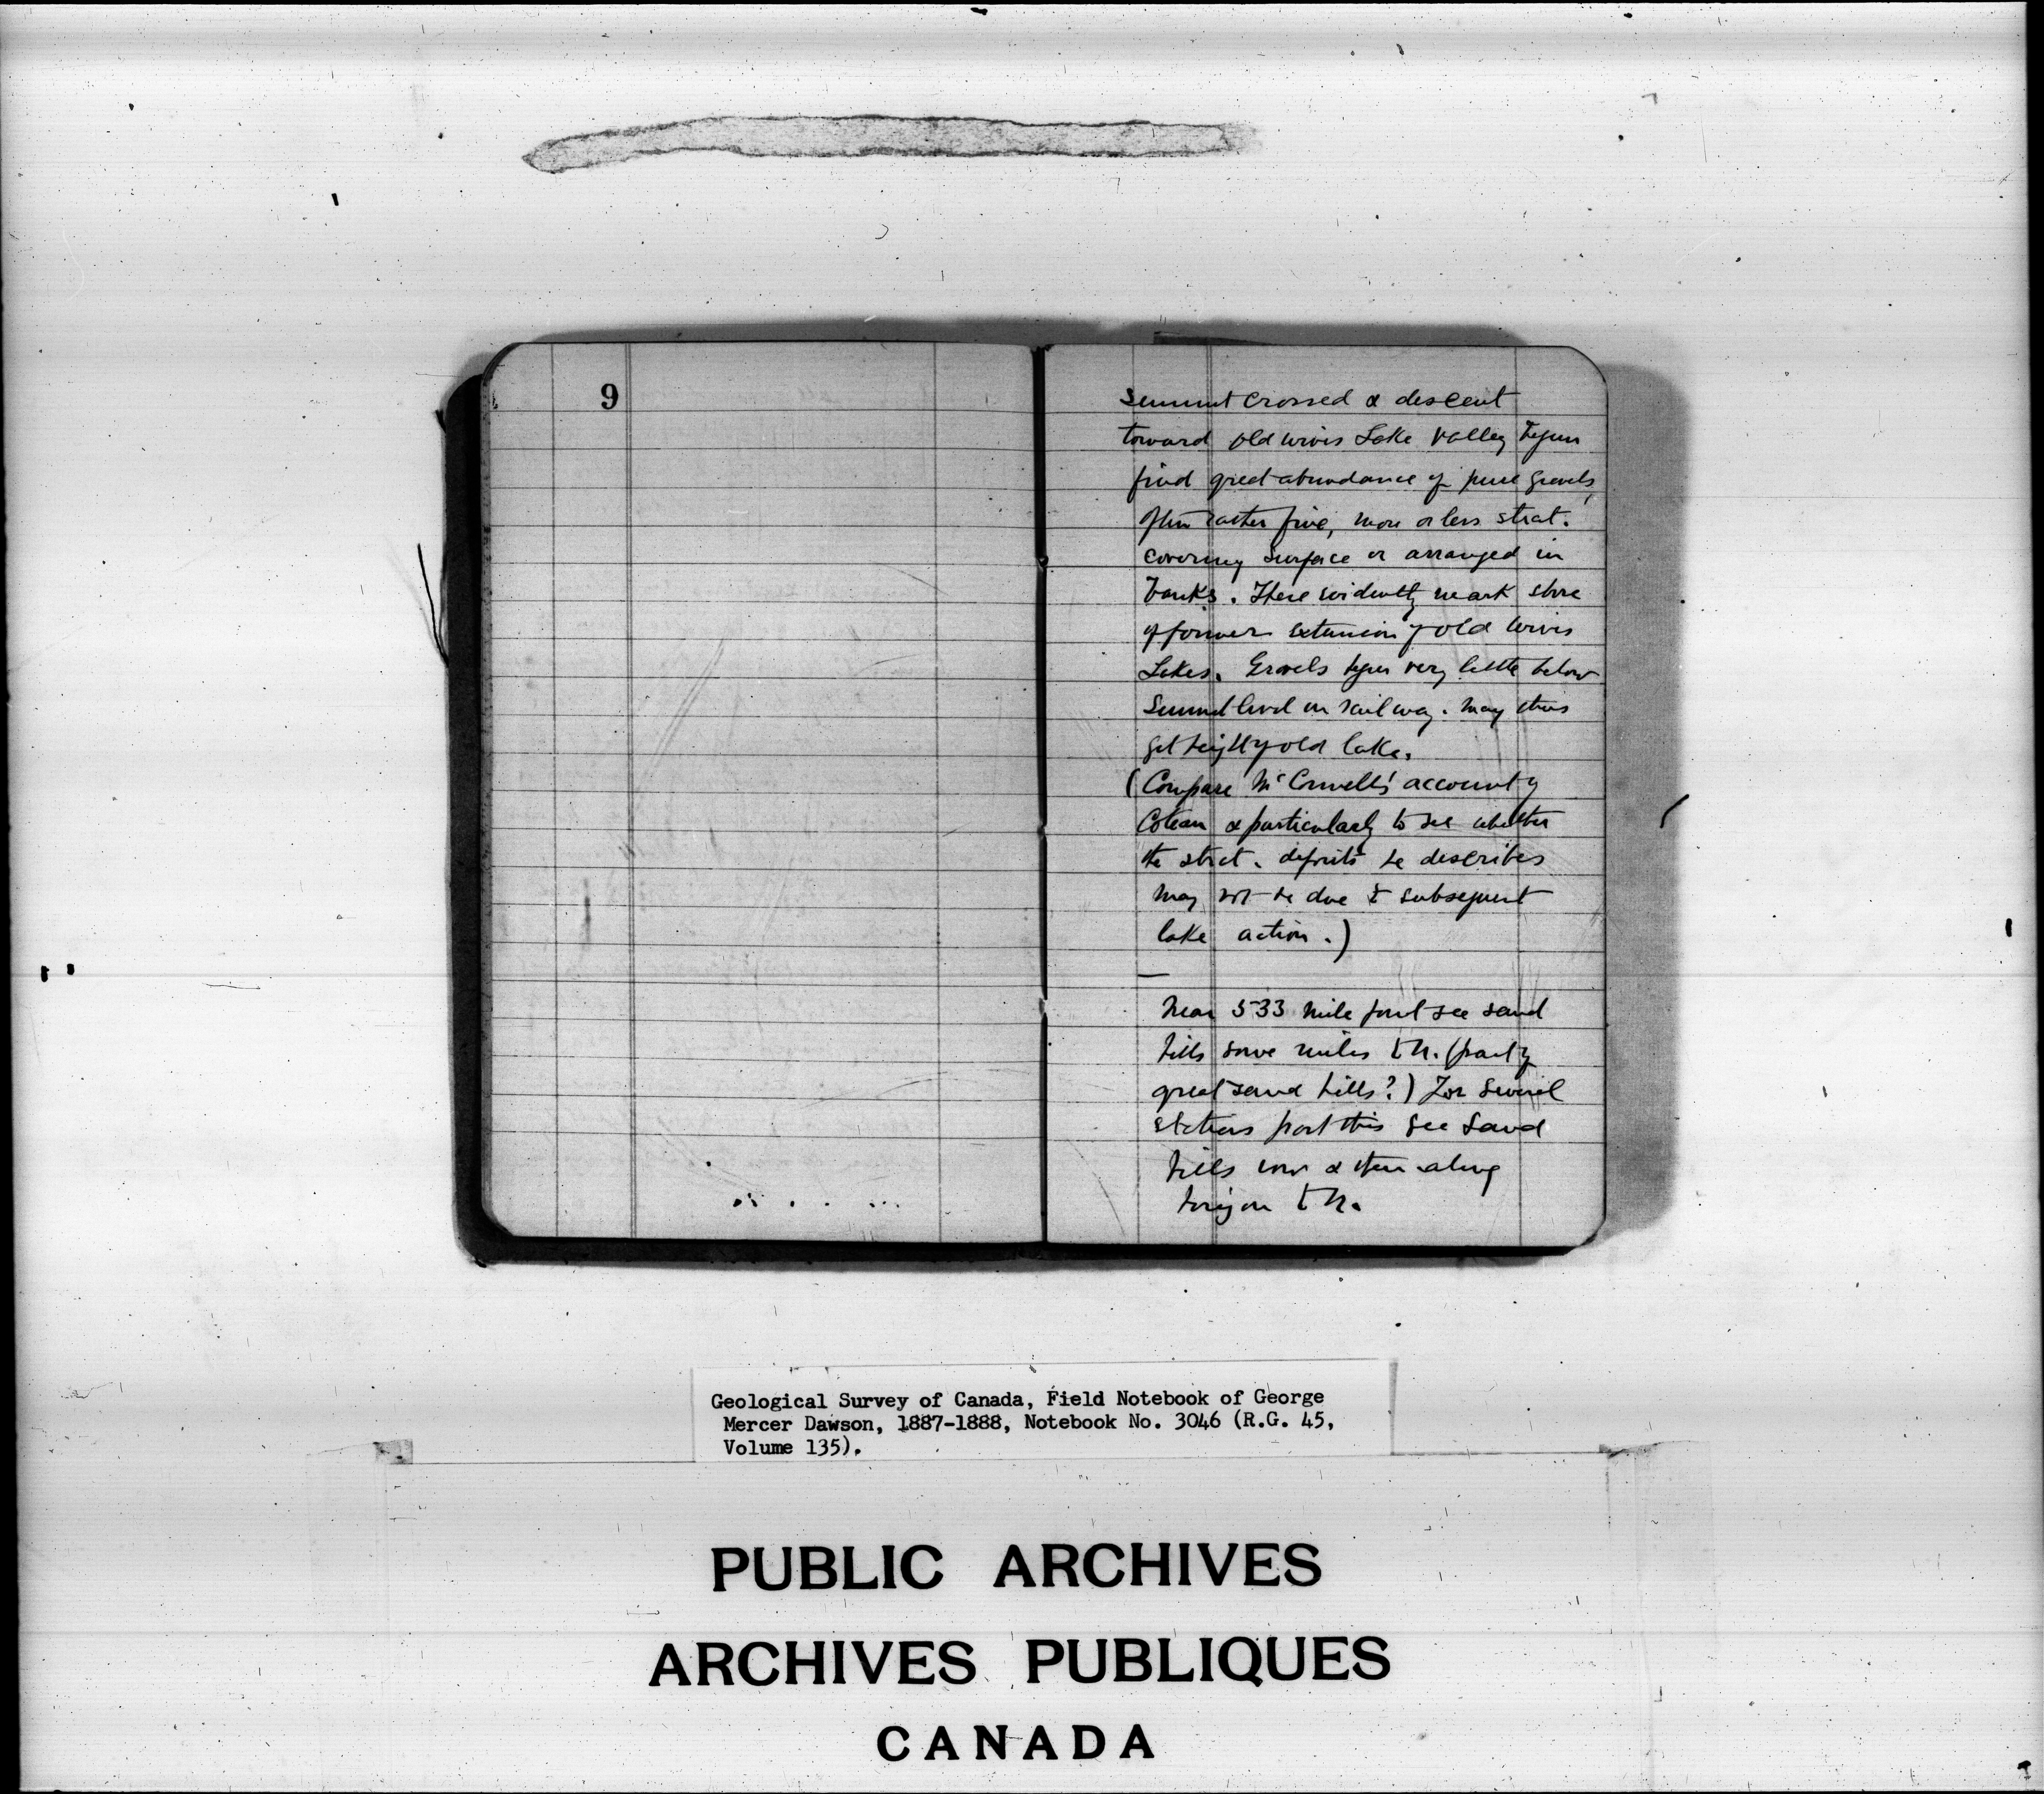 9
Summit crossed & descent
toward old wives Lake valley begun
find great abundance of pure gravels,
often rather fine, more or less strat.
covering surface or arranged in
banks. These evidently mark shore
of former extension of old wives
Lakes. Gravels begin very little below
Summit level on railway. May thus
get height of old lake.
(Compare McConnell's account of
Coteau & particularly to see whether
the strat. deposits he describes
may not be due to subsequent
lake action.)
—
Near 533 mile post see sand
hills some miles to N. (part of
great sand hills?) For several
stations past this see Sand
hills now & then along
horizon to N.
Geological Survey of Canada, Field Notebook of George
Mercer Dawson, 1887-1888, Notebook No. 3046 (R.G. 45,
Volume 135).
PUBLIC ARCHIVES
ARCHIVES PUBLIQUES
CANADA